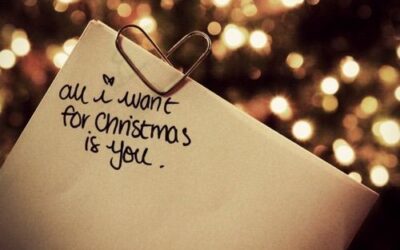 all i want
for Christmas
is you.